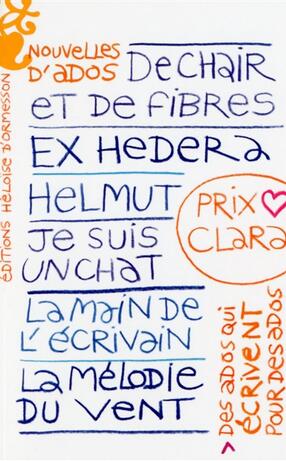 NOUVELLES
D'ADOS
De CHAIR
eT De FiBReS
EX HeDeRa
HeLMUT
Je SUiS
UN CHaT
La MaiN De
L'ÉCRiVaiN
La MÉLODie
DU VeNT
PRiX
CLaRa
ÉDITIONS HÉLOÏSE D'ORMESSON
> Des aDOS QUi
ÉCRiVeNT
POUR Des aDOS